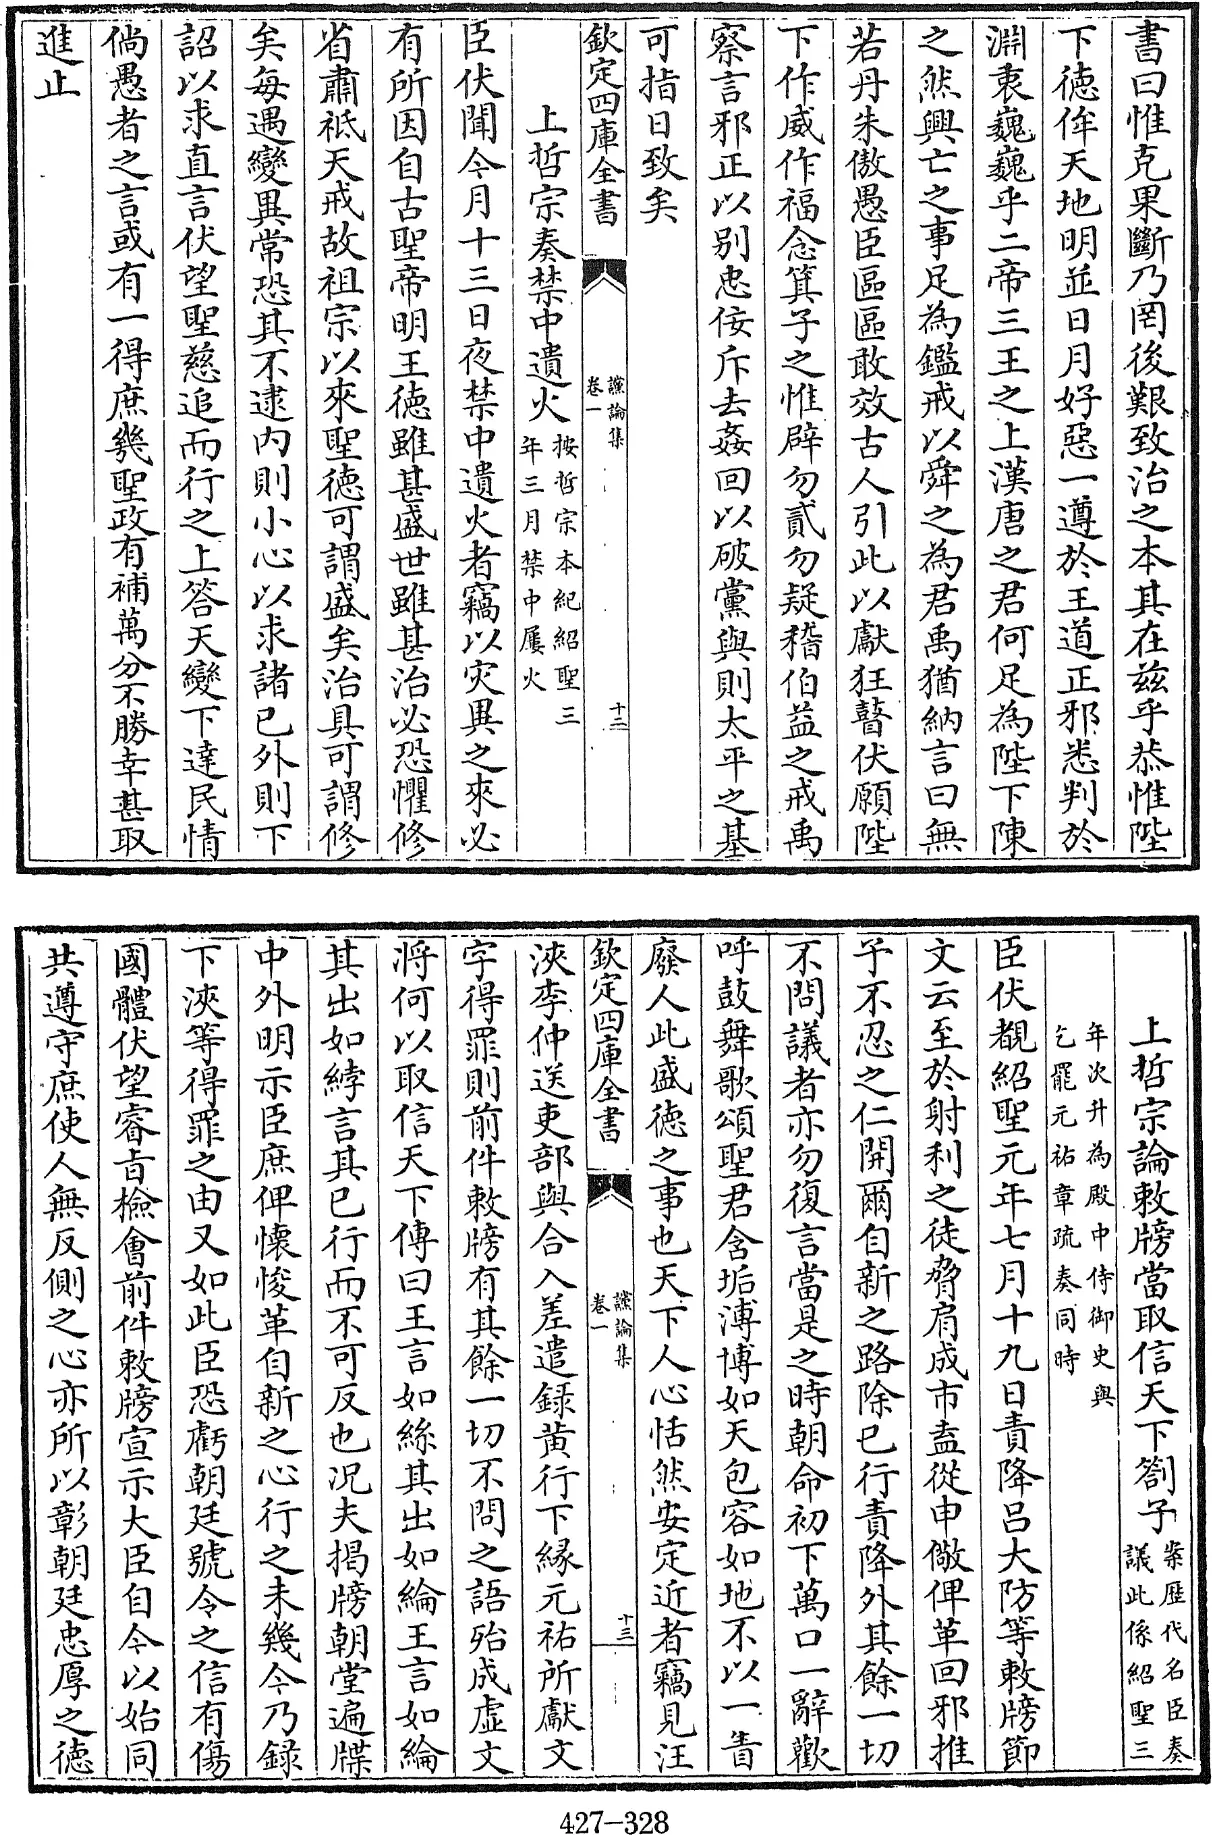 書曰惟克果斷乃罔後艱致治之本其在茲乎恭惟陛
下徳侔天地明並日月好惡一遵於王道正邪悉判於
淵衷巍巍乎二帝三王之上漢唐之君何足為陛下陳
之然興亡之事足為鑑戒以舜之為君禹猶納言曰無
若丹朱傲愚臣區區敢效古人引此以獻狂瞽伏願陛
下作威作福念箕子之惟辟勿貳勿疑稽伯益之戒禹
察言邪正以别忠佞斥去姦回以破黨與則太平之基
可指日致矣
欽定四庫全書
讜論集
卷一
十二
上哲宗奏禁中遺火
按哲宗本紀紹聖三
年三月禁中屢火
臣伏聞今月十三日夜禁中遺火者竊以災異之來必
有所因自古聖帝明王徳雖甚盛世雖甚治必恐懼修
省肅祗天戒故祖宗以來聖徳可謂盛矣治具可謂修
矣每遇變異常恐其不逮内則小心以求諸已外則下
詔以求直言伏望聖慈追而行之上答天變下達民情
倘愚者之言或有一得庶幾聖政有補萬分不勝幸甚取
進止
上哲宗論敕牓當取信天下劄子
案歴代名臣奏
議此係紹聖三
年次升為殿中侍御史與
乞罷元祐章疏奏同時
臣伏覩紹聖元年七月十九日責降吕大防等敕牓節
文云至於射利之徒脅肩成市盍從申儆俾革回邪推
予不忍之仁開爾自新之路除已行責降外其餘一切
不問議者亦勿復言當是之時朝命初下萬口一辭歡
呼鼓舞歌頌聖君含垢溥博如天包容如地不以一眚
廢人此盛徳之事也天下人心恬然安定近者竊見汪
欽定四庫全書
讜論集
卷一
十三
浹李仲送吏部與合入差遣録黄行下縁元祐所獻文
字得罪則前件敕牓有其餘一切不問之語殆成虚文
將何以取信天下傳曰王言如絲其出如綸王言如綸
其出如綍言其已行而不可反也况夫揭牓朝堂遍牒
中外明示臣庶俾懷悛革自新之心行之未幾今乃録
下浹等得罪之由又如此臣恐虧朝廷號令之信有傷
國體伏望睿㫖檢會前件敕牓宣示大臣自今以始同
共遵守庶使人無反側之心亦所以彰朝廷忠厚之徳
427-328